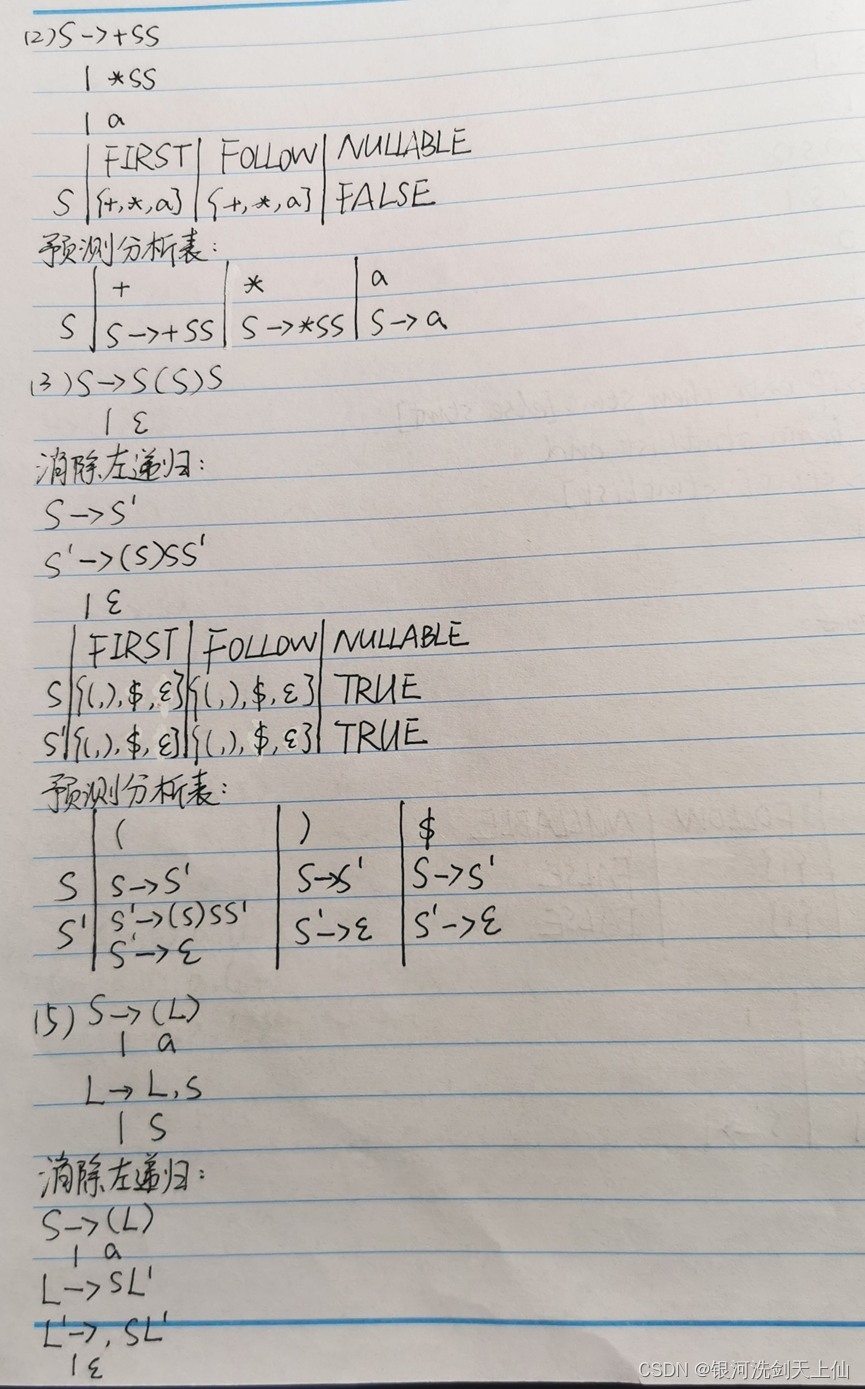 (2) S->+SS
| *SS
| a
| FIRST | FOLLOW | NULLABLE
S | {+,*,a} | {+,*,a} | FALSE
预测分析表:
| + | * | a
S | S->+SS | S->*SS | S->a
(3) S->S(S)S
| ε
消除左递归:
S->S'
S'->(S)SS'
| ε
| FIRST | FOLLOW | NULLABLE
S | {(,),$,ε} | {(,),$,ε} | TRUE
S' | {(,),$,ε} | {(,),$,ε} | TRUE
预测分析表:
| ( | ) | $
S | S->S' | S->S' | S->S'
S' | S'->(S)SS' | S'->ε | S'->ε
S'->ε
(5) S->(L)
| a
L->L,S
| S
消除左递归:
S->(L)
| a
L->SL'
L'->,SL'
| ε
CSDN @银河洗剑天上仙